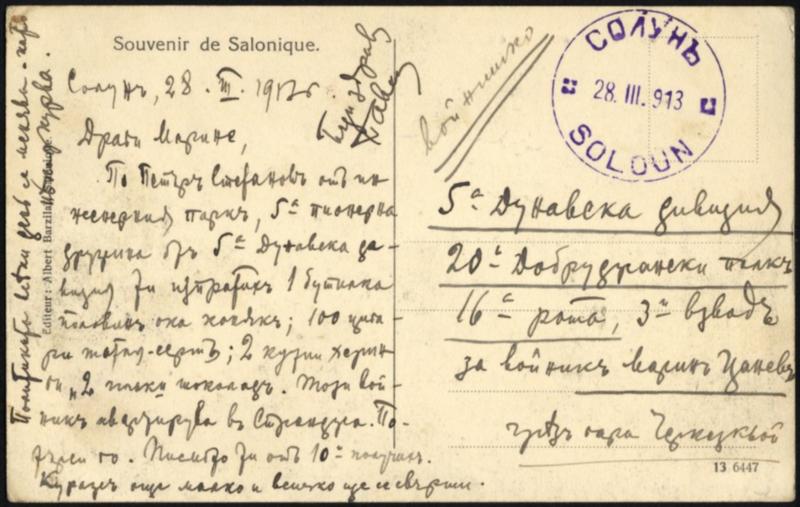 Souvenir de Salonique.
Солунъ, 28. III. 1913 г.
Драги Марине,
По Петъръ Стефановъ отъ ин-
женерния паркъ, 5а пионерна
дружина отъ 5а Дунавска ди-
визия ти изпратихъ 1 бутилка
половинъ ока конякъ; 100 цига-
ри 2 кутии
и 2 шоколадъ. Този вой-
никъ въ Странджа. По-
търси го. Писмото ти отъ 10й получихъ.
Куражъ още малко и всичко ще се свърши.
Бъди здравъ
Editeur: Albert Barzilai
войнишко
СОЛУНЪ
28. III. 913
SOLOUN
5а Дунавска дивизия
20й Добруджански полкъ
16а рота, 3й взводъ
за войникъ Маринъ Цаневъ
презъ гара Черкезкьой
13 6447